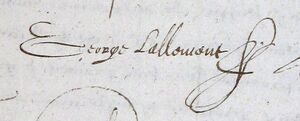 George Lallement